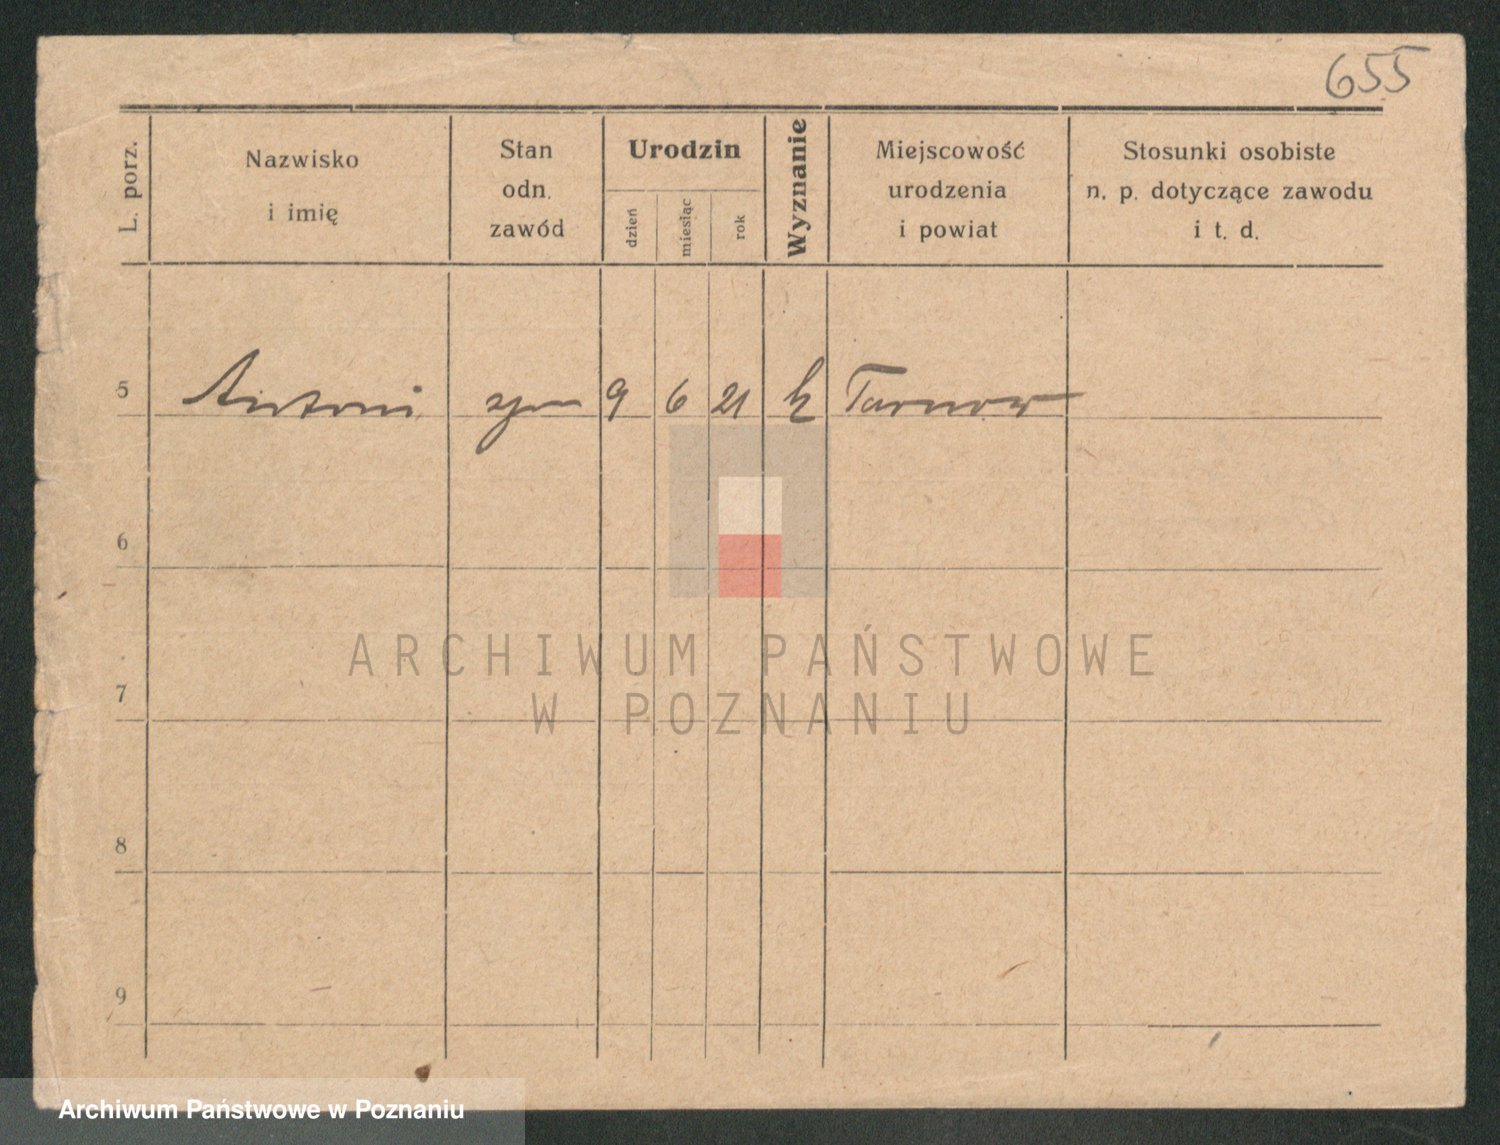 655
L. porz.
Nazwisko
i imię
Stan
odn.
zawód
Urodzin
dzień
miesiąc
rok
Wyznanie
Miejscowość
urodzenia
i powiat
Stosunki osobiste
n. p. dotyczące zawodu
i t. d.
5 Antoni syn 9 6 21 k Tarnow
6
7
8
9
ARCHIWUM PAŃSTWOWE
W POZNANIU
Archiwum Państwowe w Poznaniu